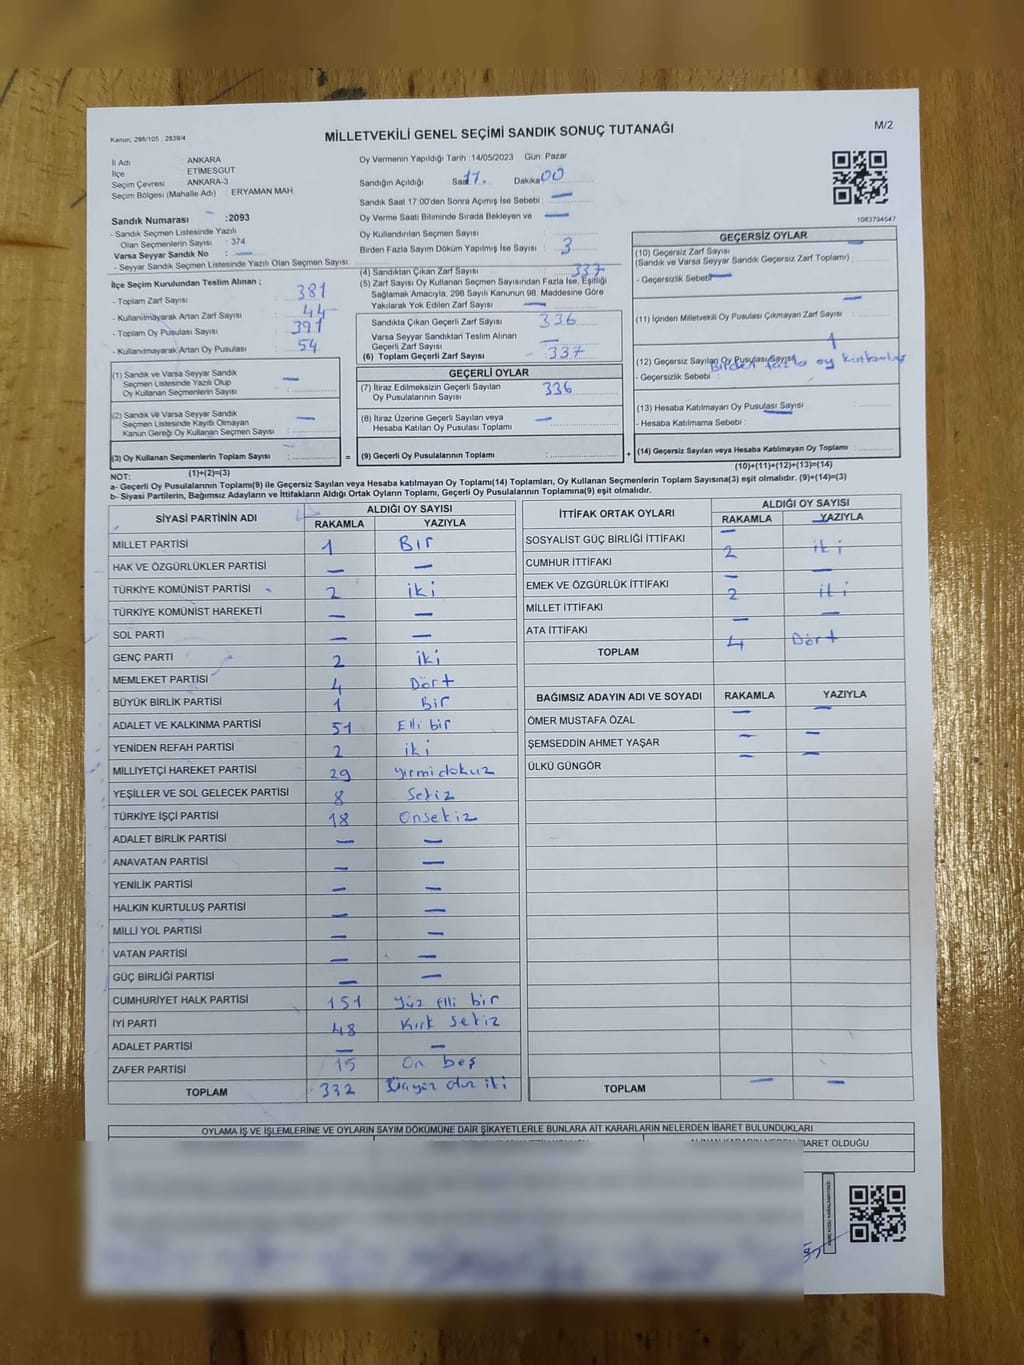 Kanun: 298/105 , 2839/4
MİLLETVEKİLİ GENEL SEÇİMİ SANDIK SONUÇ TUTANAĞI
M/2
İl Adı : ANKARA
İlçe : ETİMESGUT
Seçim Çevresi : ANKARA-3
Seçim Bölgesi (Mahalle Adı) : ERYAMAN MAH.
Sandık Numarası :2093
- Sandık Seçmen Listesinde Yazılı
Olan Seçmenlerin Sayısı : 374
Varsa Seyyar Sandık No : —
- Seyyar Sandık Listesinde Yazılı Olan Seçmen Sayısı:
İlçe Seçim Kurulundan Teslim Alınan ;
- Toplam Zarf Sayısı : 381
- Kullanılmayarak Artan Zarf Sayısı : 44
- Toplam Oy Pusulası Sayısı : 391
- Kullanılmayarak Artan Oy Pusulası : 54
(1) Sandık ve Varsa Seyyar Sandık
Seçmen Listesinde Yazılı Olup
Oy Kullanan Seçmenlerin Sayısı : —
(2) Sandık ve Varsa Seyyar Sandık
Seçmen Listesinde Kayıtlı Olmayan
Kanun Gereği Oy Kullanan Seçmen Sayısı : —
(3) Oy Kullanan Seçmenlerin Toplam Sayısı :
Oy Vermenin Yapıldığı Tarih :14/05/2023 Gün: Pazar
Sandığın Açıldığı Saat 17. Dakika 00
Sandık Saat 17:00'den Sonra Açılmış İse Sebebi : —
Oy Verme Saati Bitiminde Sırada Bekleyen ve —
Oy Kullandırılan Seçmen Sayısı :
Birden Fazla Sayım Döküm Yapılmış İse Sayısı : 3
(4) Sandıktan Çıkan Zarf Sayısı : 337
(5) Zarf Sayısı Oy Kullanan Seçmen Sayısından Fazla İse, Eşitliği
Sağlamak Amacıyla, 298 Sayılı Kanunun 98. Maddesine Göre
Yakılarak Yok Edilen Zarf Sayısı : —
Sandıkta Çıkan Geçerli Zarf Sayısı : 336
Varsa Seyyar Sandıktan Teslim Alınan
Geçerli Zarf Sayısı : —
(6) Toplam Geçerli Zarf Sayısı : 337
GEÇERLİ OYLAR
(7) İtiraz Edilmeksizin Geçerli Sayılan
Oy Pusulalarının Sayısı : 336
(8) İtiraz Üzerine Geçerli Sayılan veya
Hesaba Katılan Oy Pusulası Toplamı : —
= (9) Geçerli Oy Pusulalarının Toplamı :
1083794547
GEÇERSİZ OYLAR
(10) Geçersiz Zarf Sayısı
(Sandık ve Varsa Seyyar Sandık Geçersiz Zarf Toplamı) : —
- Geçersizlik Sebebi : —
(11) İçinden Milletvekili Oy Pusulası Çıkmayan Zarf Sayısı : —
(12) Geçersiz Sayılan Oy Pusulası Sayısı : 1
- Geçersizlik Sebebi : Birden fazla oy
(13) Hesaba Katılmayan Oy Pusulası Sayısı : —
- Hesaba Katılmama Sebebi :
+ (14) Geçersiz Sayılan veya Hesaba Katılmayan Oy Toplamı :
NOT: (1)+(2)=(3)
(10)+(11)+(12)+(13)=(14)
a- Geçerli Oy Pusulalarının Toplamı(9) ile Geçersiz Sayılan veya Hesaba katılmayan Oy Toplamı(14) Toplamları, Oy Kullanan Seçmenlerin Toplam Sayısına(3) eşit olmalıdır. (9)+(14)=(3)
b- Siyasi Partilerin, Bağımsız Adayların ve İttifakların Aldığı Ortak Oyların Toplamı, Geçerli Oy Pusulalarının Toplamına(9) eşit olmalıdır.
SİYASİ PARTİNİN ADI ALDIĞI OY SAYISI
RAKAMLA YAZIYLA
MİLLET PARTİSİ 1 Bir
HAK VE ÖZGÜRLÜKLER PARTİSİ — —
TÜRKİYE KOMÜNİST PARTİSİ 2 iki
TÜRKİYE KOMÜNİST HAREKETİ — —
SOL PARTİ — —
GENÇ PARTİ 2 iki
MEMLEKET PARTİSİ 4 Dört
BÜYÜK BİRLİK PARTİSİ 1 Bir
ADALET VE KALKINMA PARTİSİ 51 Elli bir
YENİDEN REFAH PARTİSİ 2 iki
MİLLİYETÇİ HAREKET PARTİSİ 29 yirmi dokuz
YEŞİLLER VE SOL GELECEK PARTİSİ 8 Sekiz
TÜRKİYE İŞÇİ PARTİSİ 18 Onsekiz
ADALET BİRLİK PARTİSİ — —
ANAVATAN PARTİSİ — —
YENİLİK PARTİSİ — —
HALKIN KURTULUŞ PARTİSİ — —
MİLLİ YOL PARTİSİ — —
VATAN PARTİSİ — —
GÜÇ BİRLİĞİ PARTİSİ — —
CUMHURİYET HALK PARTİSİ 151 Yüz elli bir
İYİ PARTİ 48 Kırk sekiz
ADALET PARTİSİ — —
ZAFER PARTİSİ 15 On beş
TOPLAM 332 Üçyüz otuz iki
İTTİFAK ORTAK OYLARI ALDIĞI OY SAYISI
RAKAMLA YAZIYLA
SOSYALİST GÜÇ BİRLİĞİ İTTİFAKI — —
CUMHUR İTTİFAKI 2 iki
EMEK VE ÖZGÜRLÜK İTTİFAKI — —
MİLLET İTTİFAKI 2 iki
ATA İTTİFAKI — —
TOPLAM 4 Dört
BAĞIMSIZ ADAYIN ADI VE SOYADI RAKAMLA YAZIYLA
ÖMER MUSTAFA ÖZAL — —
ŞEMSEDDİN AHMET YAŞAR — —
ÜLKÜ GÜNGÖR — —
TOPLAM — —
OYLAMA İŞ VE İŞLEMLERİNE VE OYLARIN SAYIM DÖKÜMÜNE DAİR ŞİKAYETLERLE BUNLARA AİT KARARLARIN NELERDEN İBARET BULUNDUKLARI
İBARET OLDUĞU